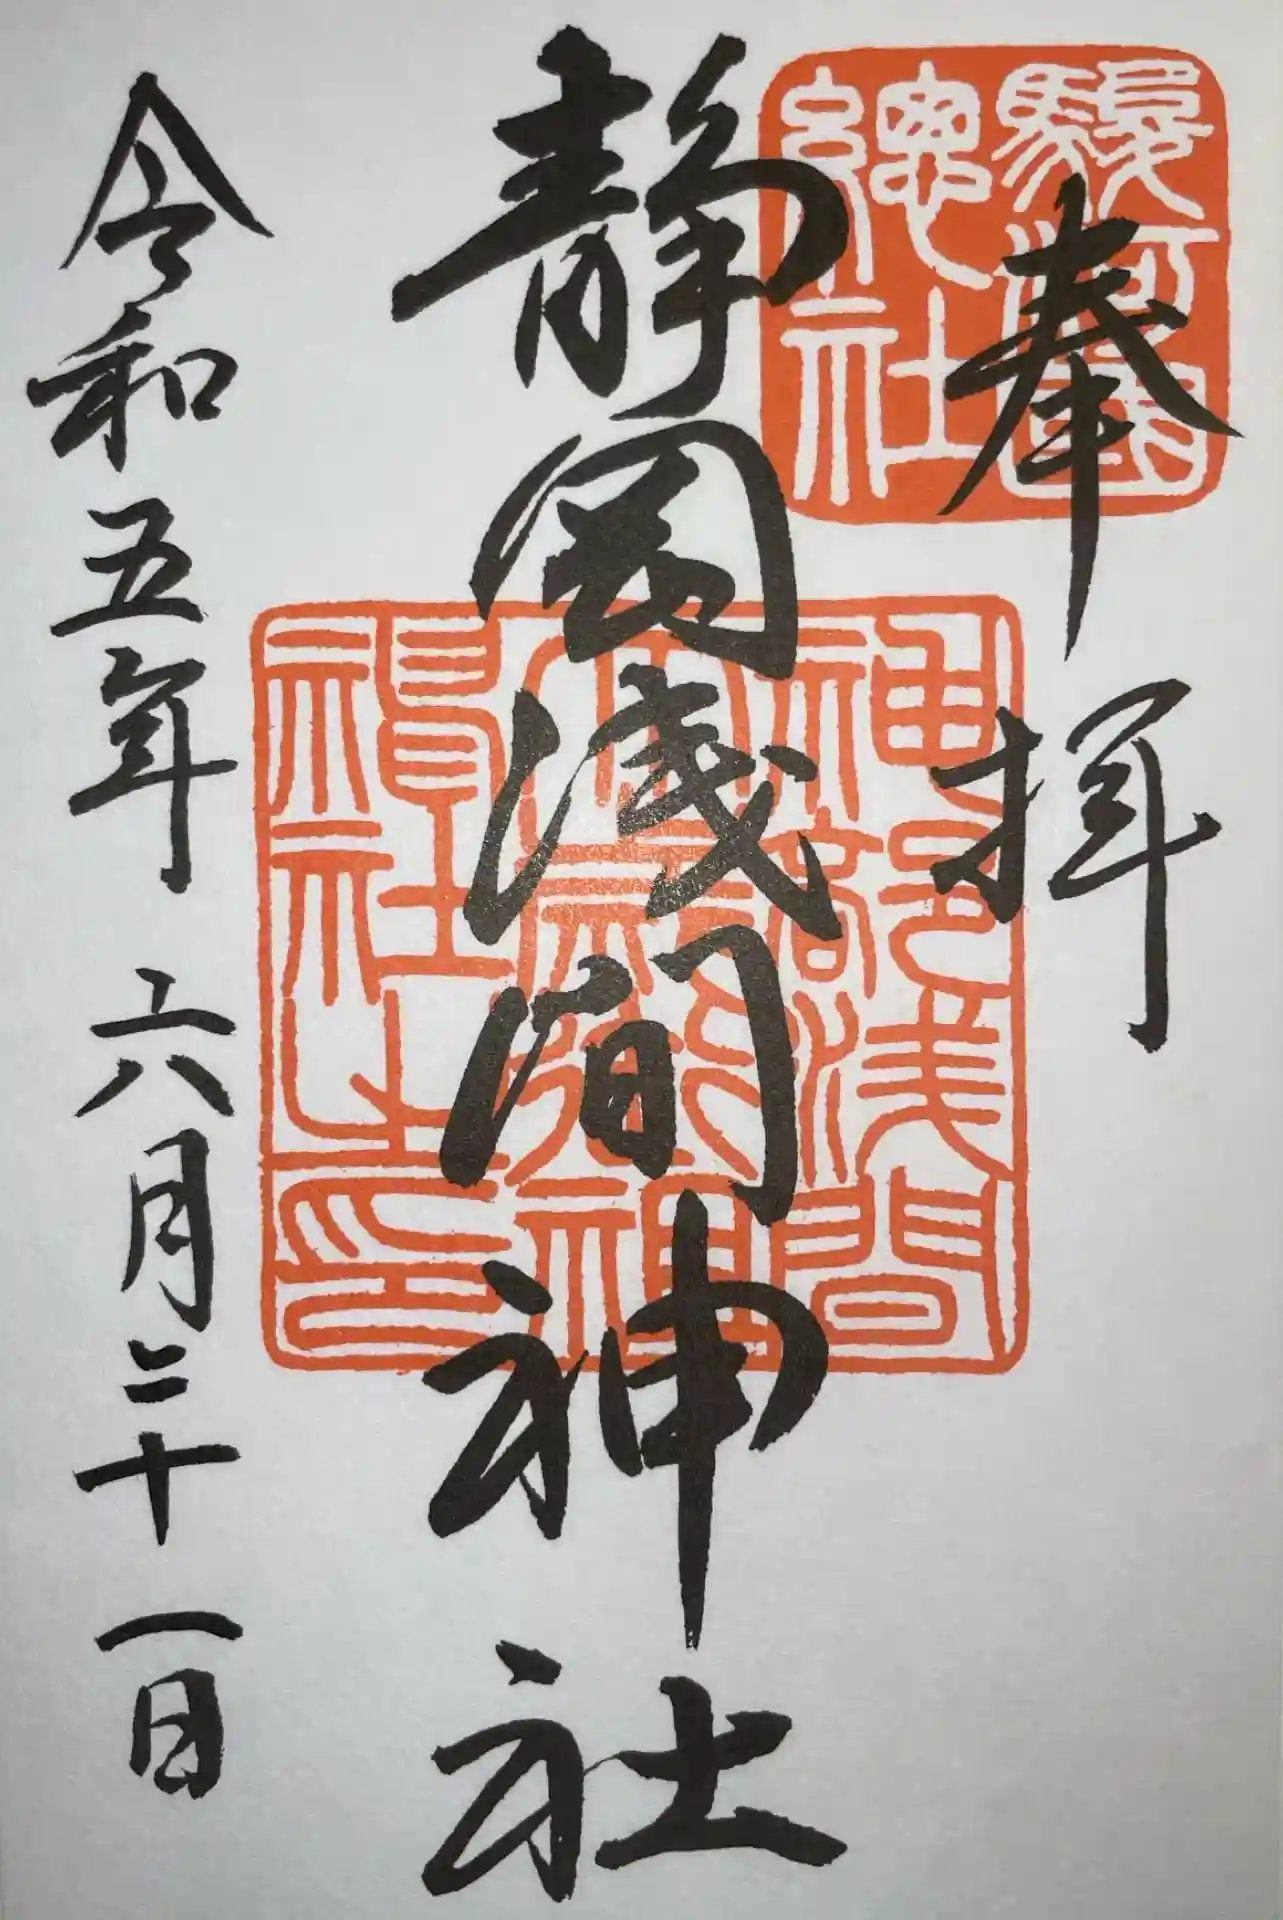 奉拝
駿河國
總社
静岡浅間神社
神部浅間
大歳御祖神
社之印
令和五年 六月二十一日